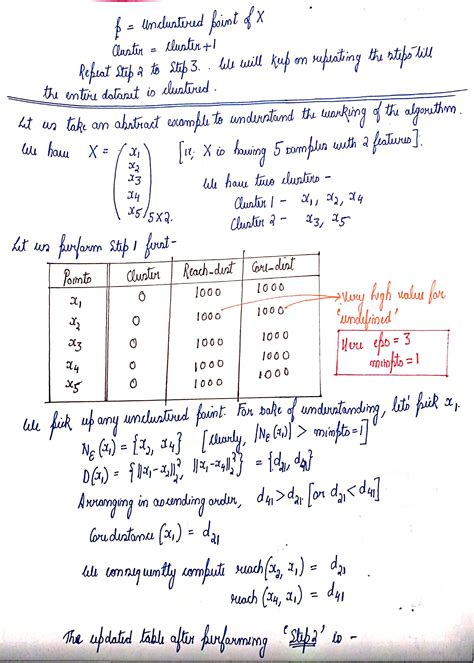 p = Unclustered point of X
Cluster = Cluster+1
Repeat Step 2 to Step 3. We will keep on repeating the steps till
the entire dataset is clustered.
Let us take an abstract example to understand the working of the algorithm.
We have X = (x1 x2 x3 x4 x5) 5X2. [ie; X is having 5 samples with 2 features].
We have two clusters -
Cluster 1 - x1, x2, x4
Cluster 2 - x3, x5
Let us perform Step 1 first-
Points Cluster Reach-dist Core-dist
x1 0 1000 1000
x2 0 1000 1000
x3 0 1000 1000
x4 0 1000 1000
x5 0 1000 1000
Very high value for
'undefined'
Here eps = 3
minpts = 1
We pick up any unclustered point. For sake of understanding, lets' pick x1.
Nε(x1) = {x2, x4} [clearly, |Nε(x1)| > minpts=1]
D(x1) = {||x1-x2||²₂, ||x1-x4||²₂} = {d21, d41}
Arranging in ascending order, d41 > d21 [or d21 < d41]
Core distance (x1) = d21
We consequently compute reach(x2, x1) = d21
reach (x4, x1) = d41
The updated table after performing 'Step 2' is -